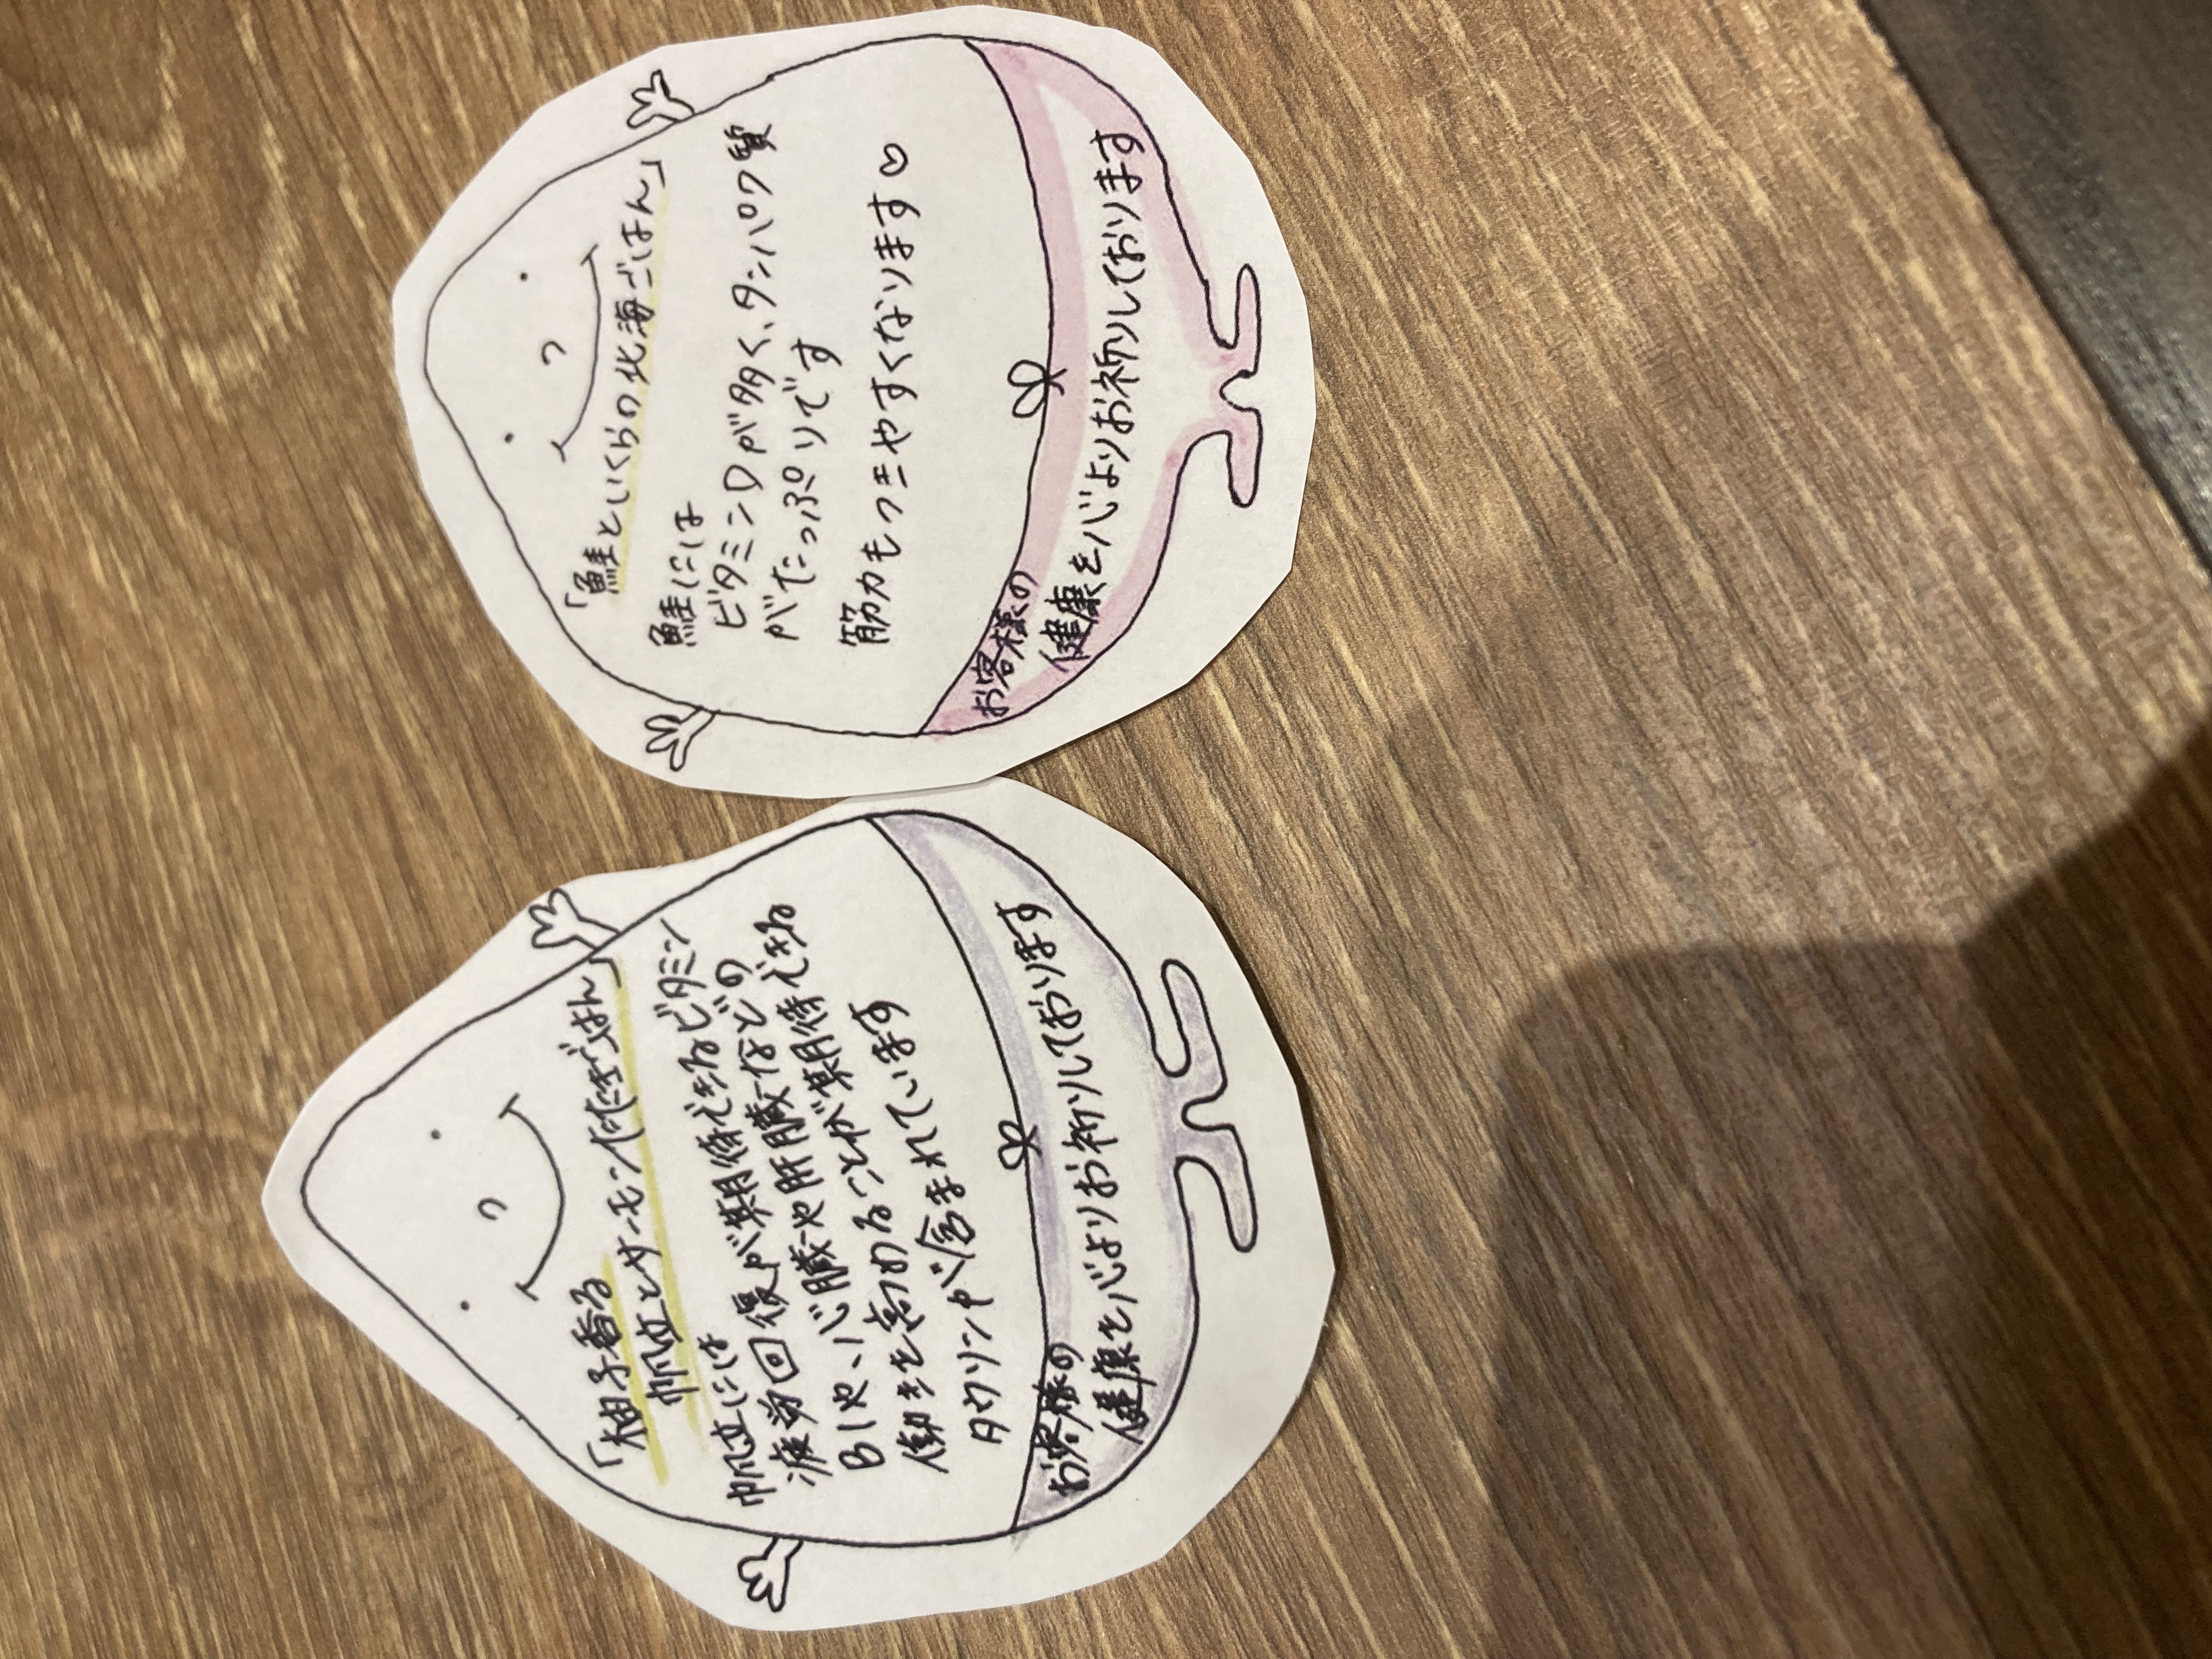 「柚子香る
帆立とサーモンわただごはん」
帆立には
疲労回復が期待できるビタミン
B1や、心臓や肝臓などの
働きを高めることが期待できる
タウリンが含まれています
お客様の
健康を心よりお祈りしております
「鮭といくらの北海ごはん」
鮭には
ビタミンDが多く、タンパク質
がたっぷりです
筋力もつきやすくなります♡
お客様の
健康を心よりお祈りしております